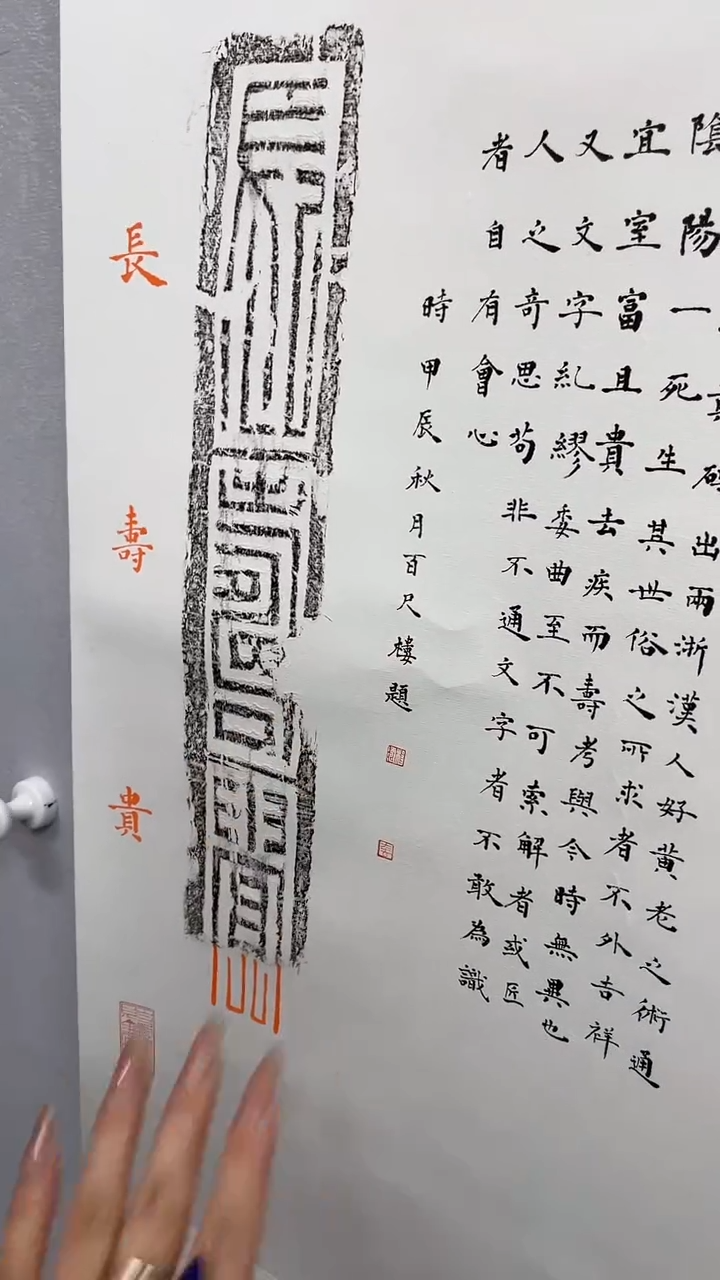 出兩浙漢人好黄老之術通
陰陽一死生其世俗之所求者不外吉祥
宜室富且貴去疾而壽考與今時無異也
又文字糺繆委曲至不可索解者或匠
人之奇思苟非不通文字者不敢為識
者自有會心
時甲辰秋月百尺樓題
長壽貴
長壽貴